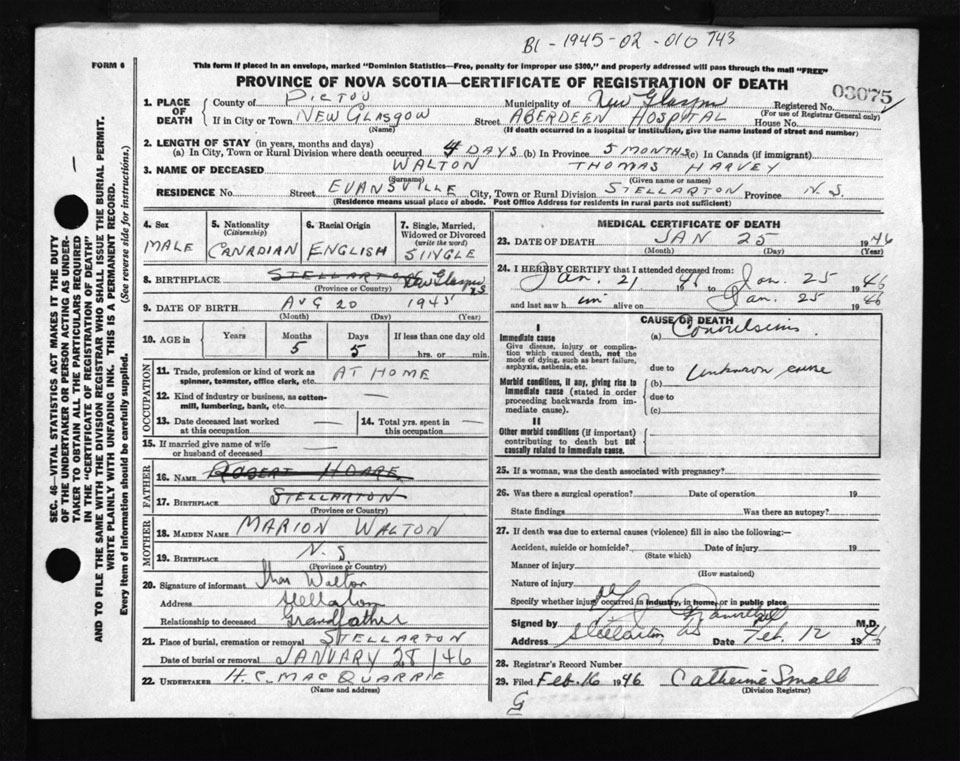 BI - 1945-02-010743
FORM 6
This form if placed in an envelope, marked "Dominion Statistics—Free, penalty for improper use $300," and properly addressed will pass through the mail "FREE"
PROVINCE OF NOVA SCOTIA—CERTIFICATE OF REGISTRATION OF DEATH
03075
1. PLACE OF DEATH
County of PICTOU Municipality of New Glasgow Registered No.
(For use of Registrar General only)
If in City or Town NEW GLASGOW Street ABERDEEN HOSPITAL House No.
(Name) (If death occurred in a hospital or institution, give the name instead of street and number)
2. LENGTH OF STAY (in years, months and days)
(a) In City, Town or Rural Division where death occurred 4 DAYS (b) In Province 5 MONTHS (c) In Canada (if immigrant)
3. NAME OF DECEASED WALTON THOMAS HARVEY
(Surname) (Given name or names)
RESIDENCE No. Street EVANSVILLE City, Town or Rural Division STELLARTON Province N.S.
(Residence means usual place of abode. Post Office Address for residents in rural parts not sufficient)
4. Sex
MALE
5. Nationality
(Citizenship)
CANADIAN
6. Racial Origin
ENGLISH
7. Single, Married, Widowed or Divorced
(write the word)
SINGLE
8. BIRTHPLACE STELLARTON New Glasgow NS
(Province or Country)
9. DATE OF BIRTH AUG 20 1945
(Month) (Day) (Year)
10. AGE in Years Months Days If less than one day old
5 5 hrs. or min.
OCCUPATION
11. Trade, profession or kind of work as spinner, teamster, office clerk, etc. AT HOME
12. Kind of industry or business, as cotton-mill, lumbering, bank, etc. —
13. Date deceased last worked at this occupation —
14. Total yrs. spent in this occupation —
15. If married give name of wife or husband of deceased
FATHER
16. NAME ROBERT HOARE
17. BIRTHPLACE STELLARTON
(Province or Country)
MOTHER
18. MAIDEN NAME MARION WALTON
19. BIRTHPLACE N.S
(Province or Country)
20. Signature of informant Thos Walton
Address Stellarton
Relationship to deceased Grandfather
21. Place of burial, cremation or removal STELLARTON
Date of burial or removal JANUARY 28/46
22. UNDERTAKER H.C. MACQUARRIE
(Name and address)
MEDICAL CERTIFICATE OF DEATH
23. DATE OF DEATH JAN 25 1946
(Month) (Day) (Year)
24. I HEREBY CERTIFY that I attended deceased from:
Jan. 21 1946 to Jan. 25 1946
and last saw him alive on Jan. 25 1946
CAUSE OF DEATH
I
Immediate cause
Give disease, injury or complication which caused death, not the mode of dying, such as heart failure, asphyxia, asthenia, etc.
(a) Convulsions.
due to unknown cause
Morbid conditions, if any, giving rise to immediate cause (stated in order proceeding backwards from immediate cause).
(b)
due to
(c)
II
Other morbid conditions (if important) contributing to death but not causally related to immediate cause.
25. If a woman, was the death associated with pregnancy?
26. Was there a surgical operation? Date of operation 19
State findings Was there an autopsy?
27. If death was due to external causes (violence) fill in also the following:—
Accident, suicide or homicide? Date of injury 19
(State which)
Manner of injury
(How sustained)
Nature of injury
Specify whether injury occurred in industry, in home, or in public place
Signed by M.D.
Address Stellarton, NS Date Feb. 12 1946
28. Registrar's Record Number
29. Filed Feb. 16 1946 Catherine Small
(Division Registrar)
G
SEC. 46—VITAL STATISTICS ACT MAKES IT THE DUTY
OF THE UNDERTAKER OR PERSON ACTING AS UNDERTAKER TO OBTAIN ALL THE PARTICULARS REQUIRED
IN THE "CERTIFICATE OF REGISTRATION OF DEATH"
AND TO FILE THE SAME WITH THE DIVISION REGISTRAR WHO SHALL ISSUE THE BURIAL PERMIT.
WRITE PLAINLY WITH UNFADING INK. THIS IS A PERMANENT RECORD.
Every item of information should be carefully supplied. (See reverse side for instructions.)